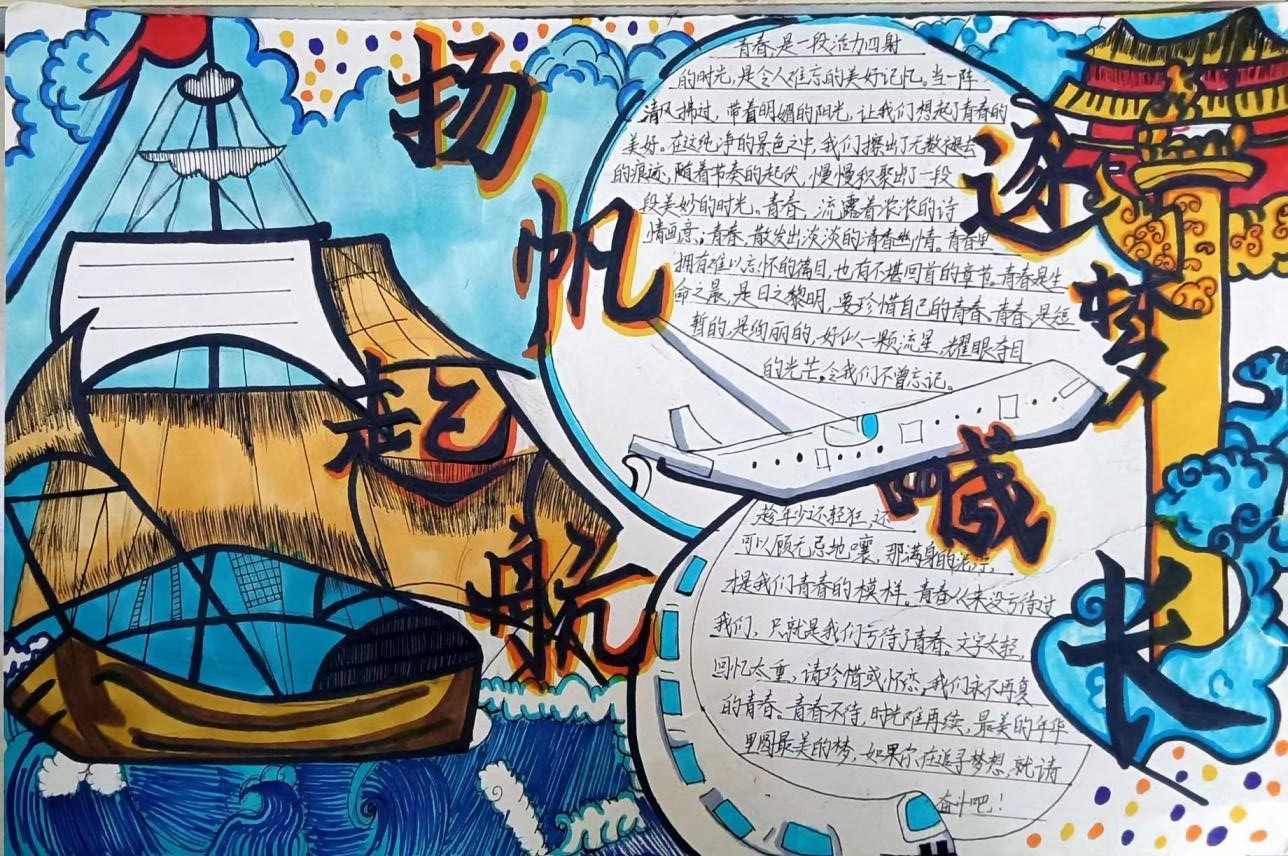 扬帆起航
逐梦成长
青春,是一段活力四射
的时光,是令人难忘的美好记忆。当一阵
清风拂过,带着明媚的阳光,让我们想起了青春的
美好。在这纯净的景色之中,我们擦出了无数褪去
的痕迹,随着节奏的起伏,慢慢积聚出了一段
段美妙的时光。青春,流露着浓浓的诗
情画意;青春,散发出淡淡的清香幽情。青春里
拥有难以忘怀的篇目,也有不堪回首的章节。青春是生
命之晨,是日之黎明,要珍惜自己的青春。青春,是短
暂的,是绚丽的,好似一颗流星,耀眼夺目
的光芒,令我们不曾忘记。
趁年少还轻狂,还
可以顾无忌地嚷,那满身的泥泞,
才是我们青春的模样。青春从来没亏待过
我们,只就是我们亏待了青春。文字太轻,
回忆太重,请珍惜或怀恋,我们永不再复
的青春。青春不待,时光难再续,最美的年华
里圆最美的梦,如果你在追寻梦想,就请
奋斗吧!